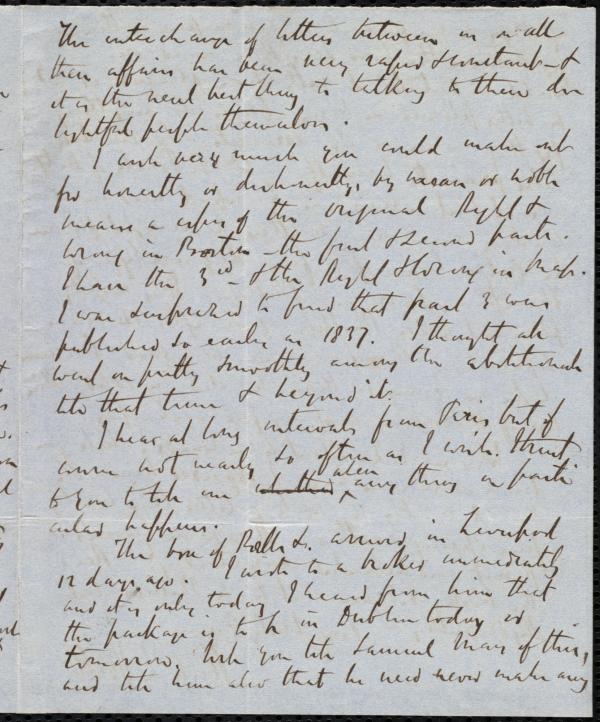 The interchange of letters between us in all
their affairs has been very rapid & constant - &
it is the next best thing to talking to these de
lightful people themselves.
I wish very much you could make out
for honestly or dishonestly, by mean or noble
means a copy of the original Right &
Wrong in Boston - the first & second parts.
I have the 3rd - & the Right & Wrong in Mass.
I was surprised to find that part 3 was
published so early as 1837. I thought all
went on pretty smoothly among the abolitionists
till that time & beyond it.
I hear at long intervals from Paris but of
course not nearly so often as I wish. I trust
to you to tell me when any thing on parti
cular happens.
The box of Bells &c. arrived in Liverpool
12 days ago. I wrote to a broker immediately
and it is only today I heard from him that
the package is to be in Dublin today or
tomorrow. Will you tell Samuel May of this,
and tell him also that he need never make any